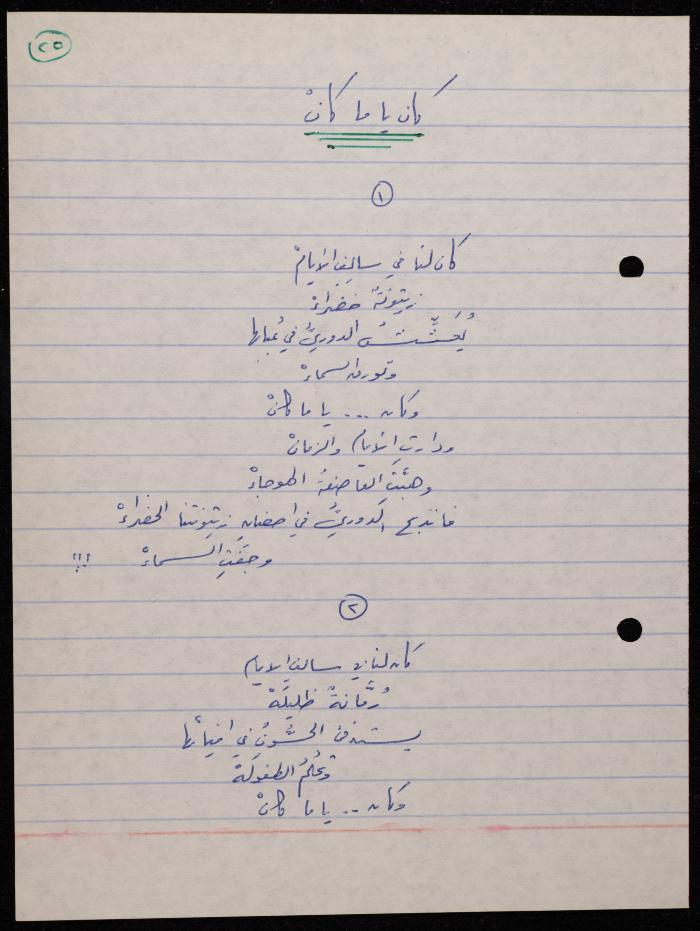 ٢٥
كان يا ما كانْ
١
كان لنا في سالِفِ الأيامْ
زيتونةٌ خضراءْ
يُعَشِّشُ الدوريُّ في عُبابها
وتورق السماءْ
وكان ... يا ما كانْ
ودارتِ الأيامُ والزمانْ
وهبَّتْ العاصفةُ الهوجاءْ
فاندبح الدوريُّ في احضانِ زيتونتنا الخضراءْ
وجفّتِ السماءْ !!؟
٢
كان لنا في سالفِ الايام
رُمَّانةٌ ظليلَةْ
يستدفئ الحسُّونُ في افيائها
وتحلُمُ الطفولَةْ
وكان .. يا ما كانْ